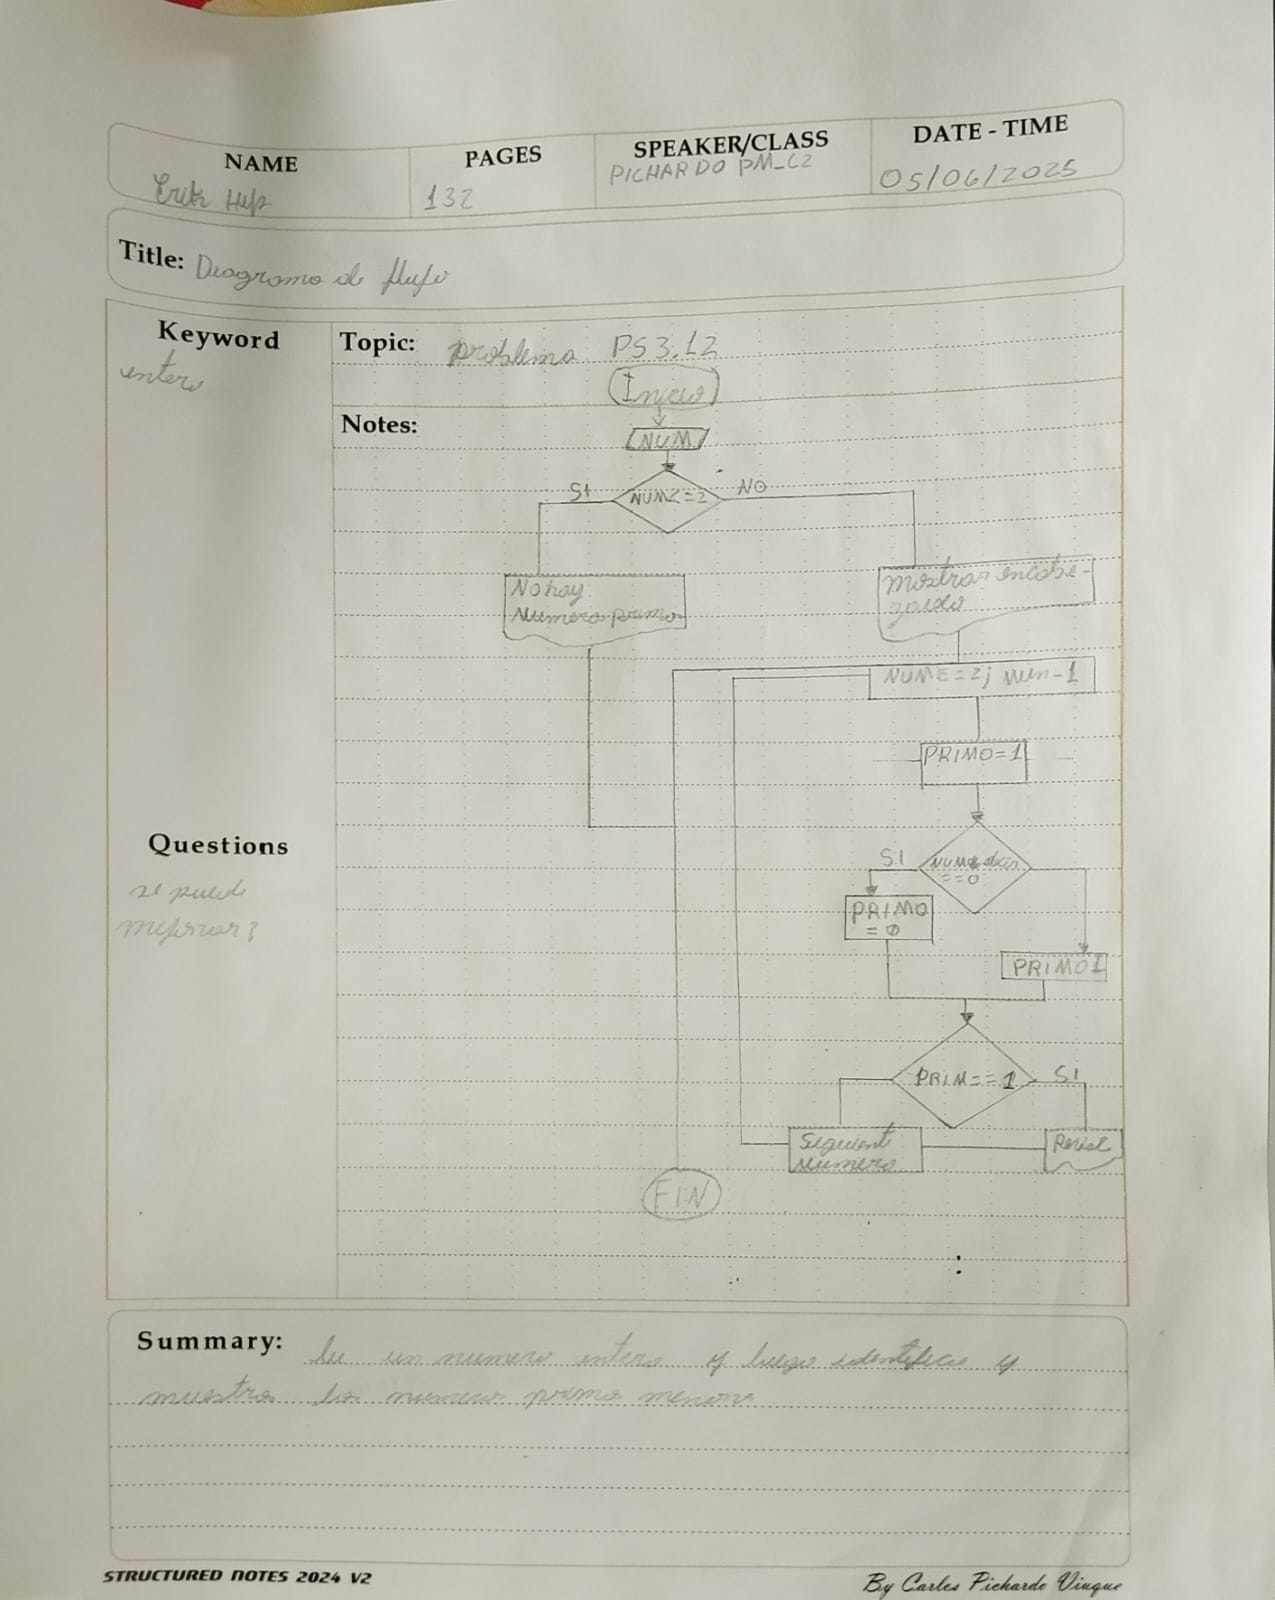 NAME
PAGES
SPEAKER/CLASS
DATE - TIME
Erik
132
PICHARDO PM_C2
05/06/2025
Title: Diagrama de flujo
Keyword
entero
Topic: problema PS3.12
Inicio
Notes:
NUM
SI
NUM<=2
NO
No hay
Numero primo
Mostrar encabe-
zado
NUME=2; num-1
PRIMO=1
SI
==0
PRIMO
= 0
PRIMO 1
Questions
se puede
mejorar?
PRIM==1
SI
Siguiente
numero
FIN
Summary: lee un numero entero y luego identifica y
muestra los numeros primos menores
STRUCTURED NOTES 2024 V2
By Carlos Pichardo Viuque